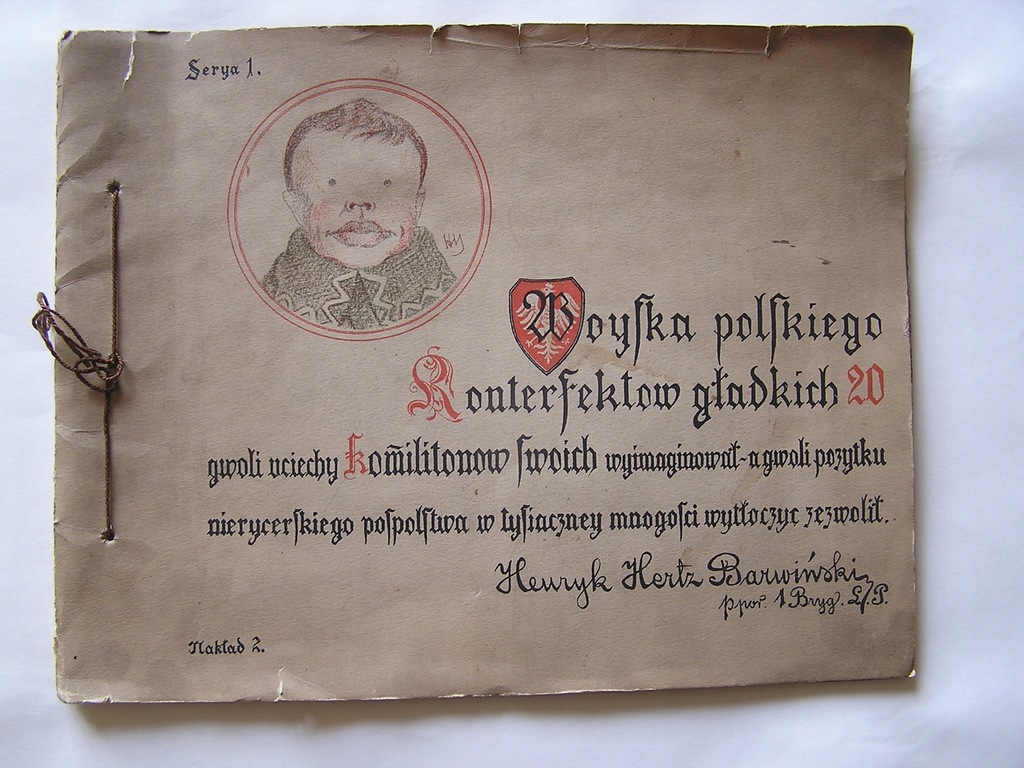 Serya 1.
HM
Woyſka polſkiego
Konterfektow gładkich 20
gwoli uciechy komilitonow ſwoich wyimaginował-a gwoli pozytku
nierycerſkiego poſpolſtwa w tyſiaczney mnogoſci wytłoczyc zezwolił.
Henryk Hertz Barwiński
ppor. 1 Bryg. L/P.
Nakład 2.